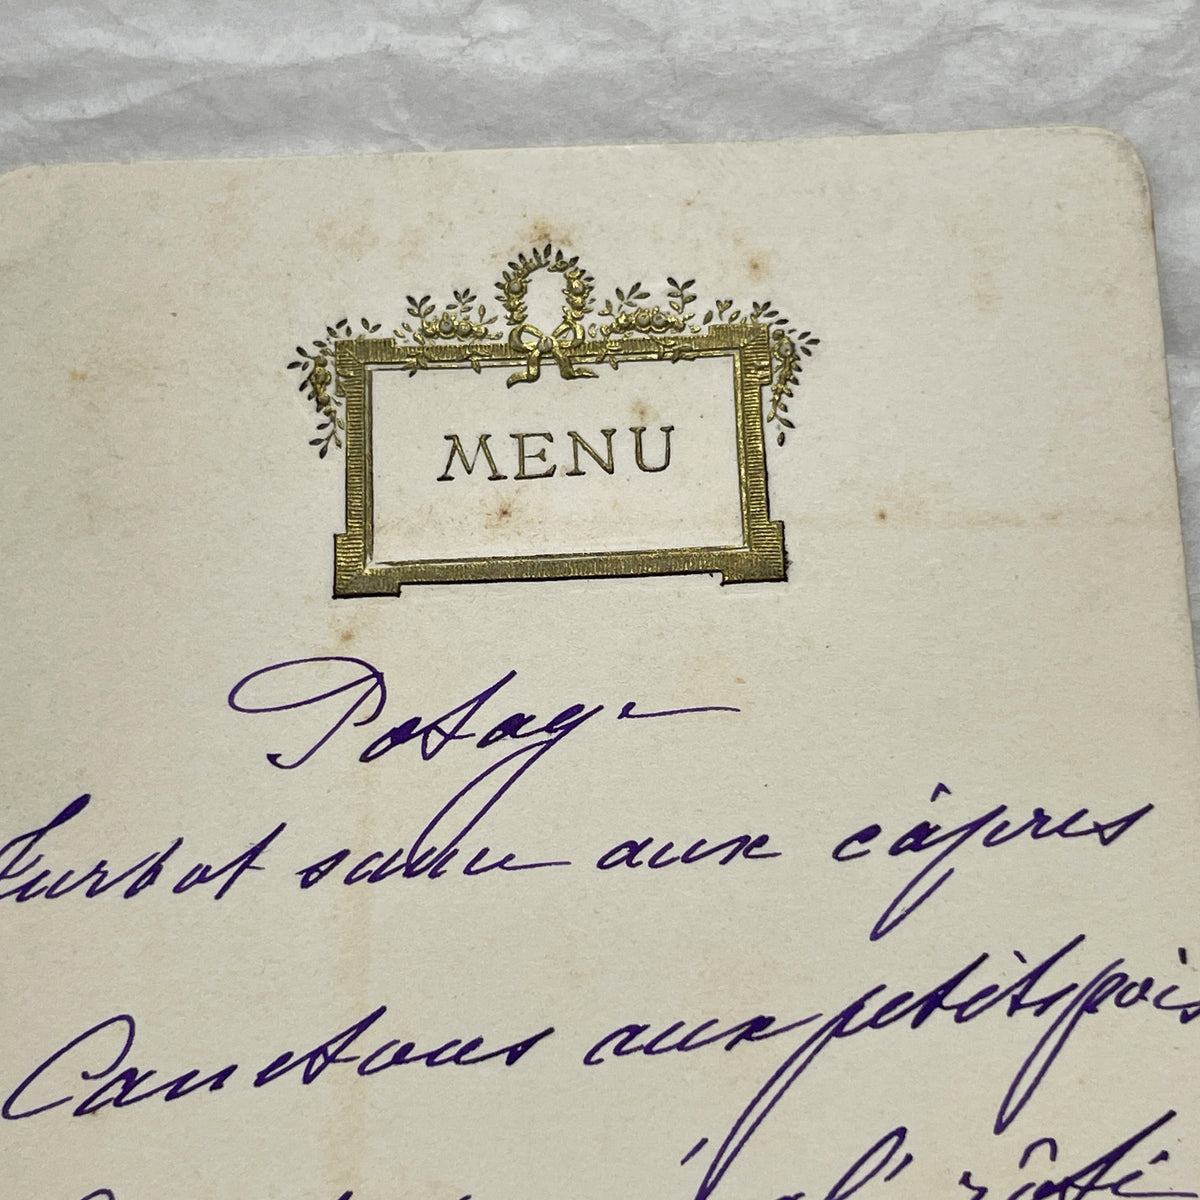 MENU
Potage
Turbot sauce aux câpres
Canetons aux petits pois
rôti